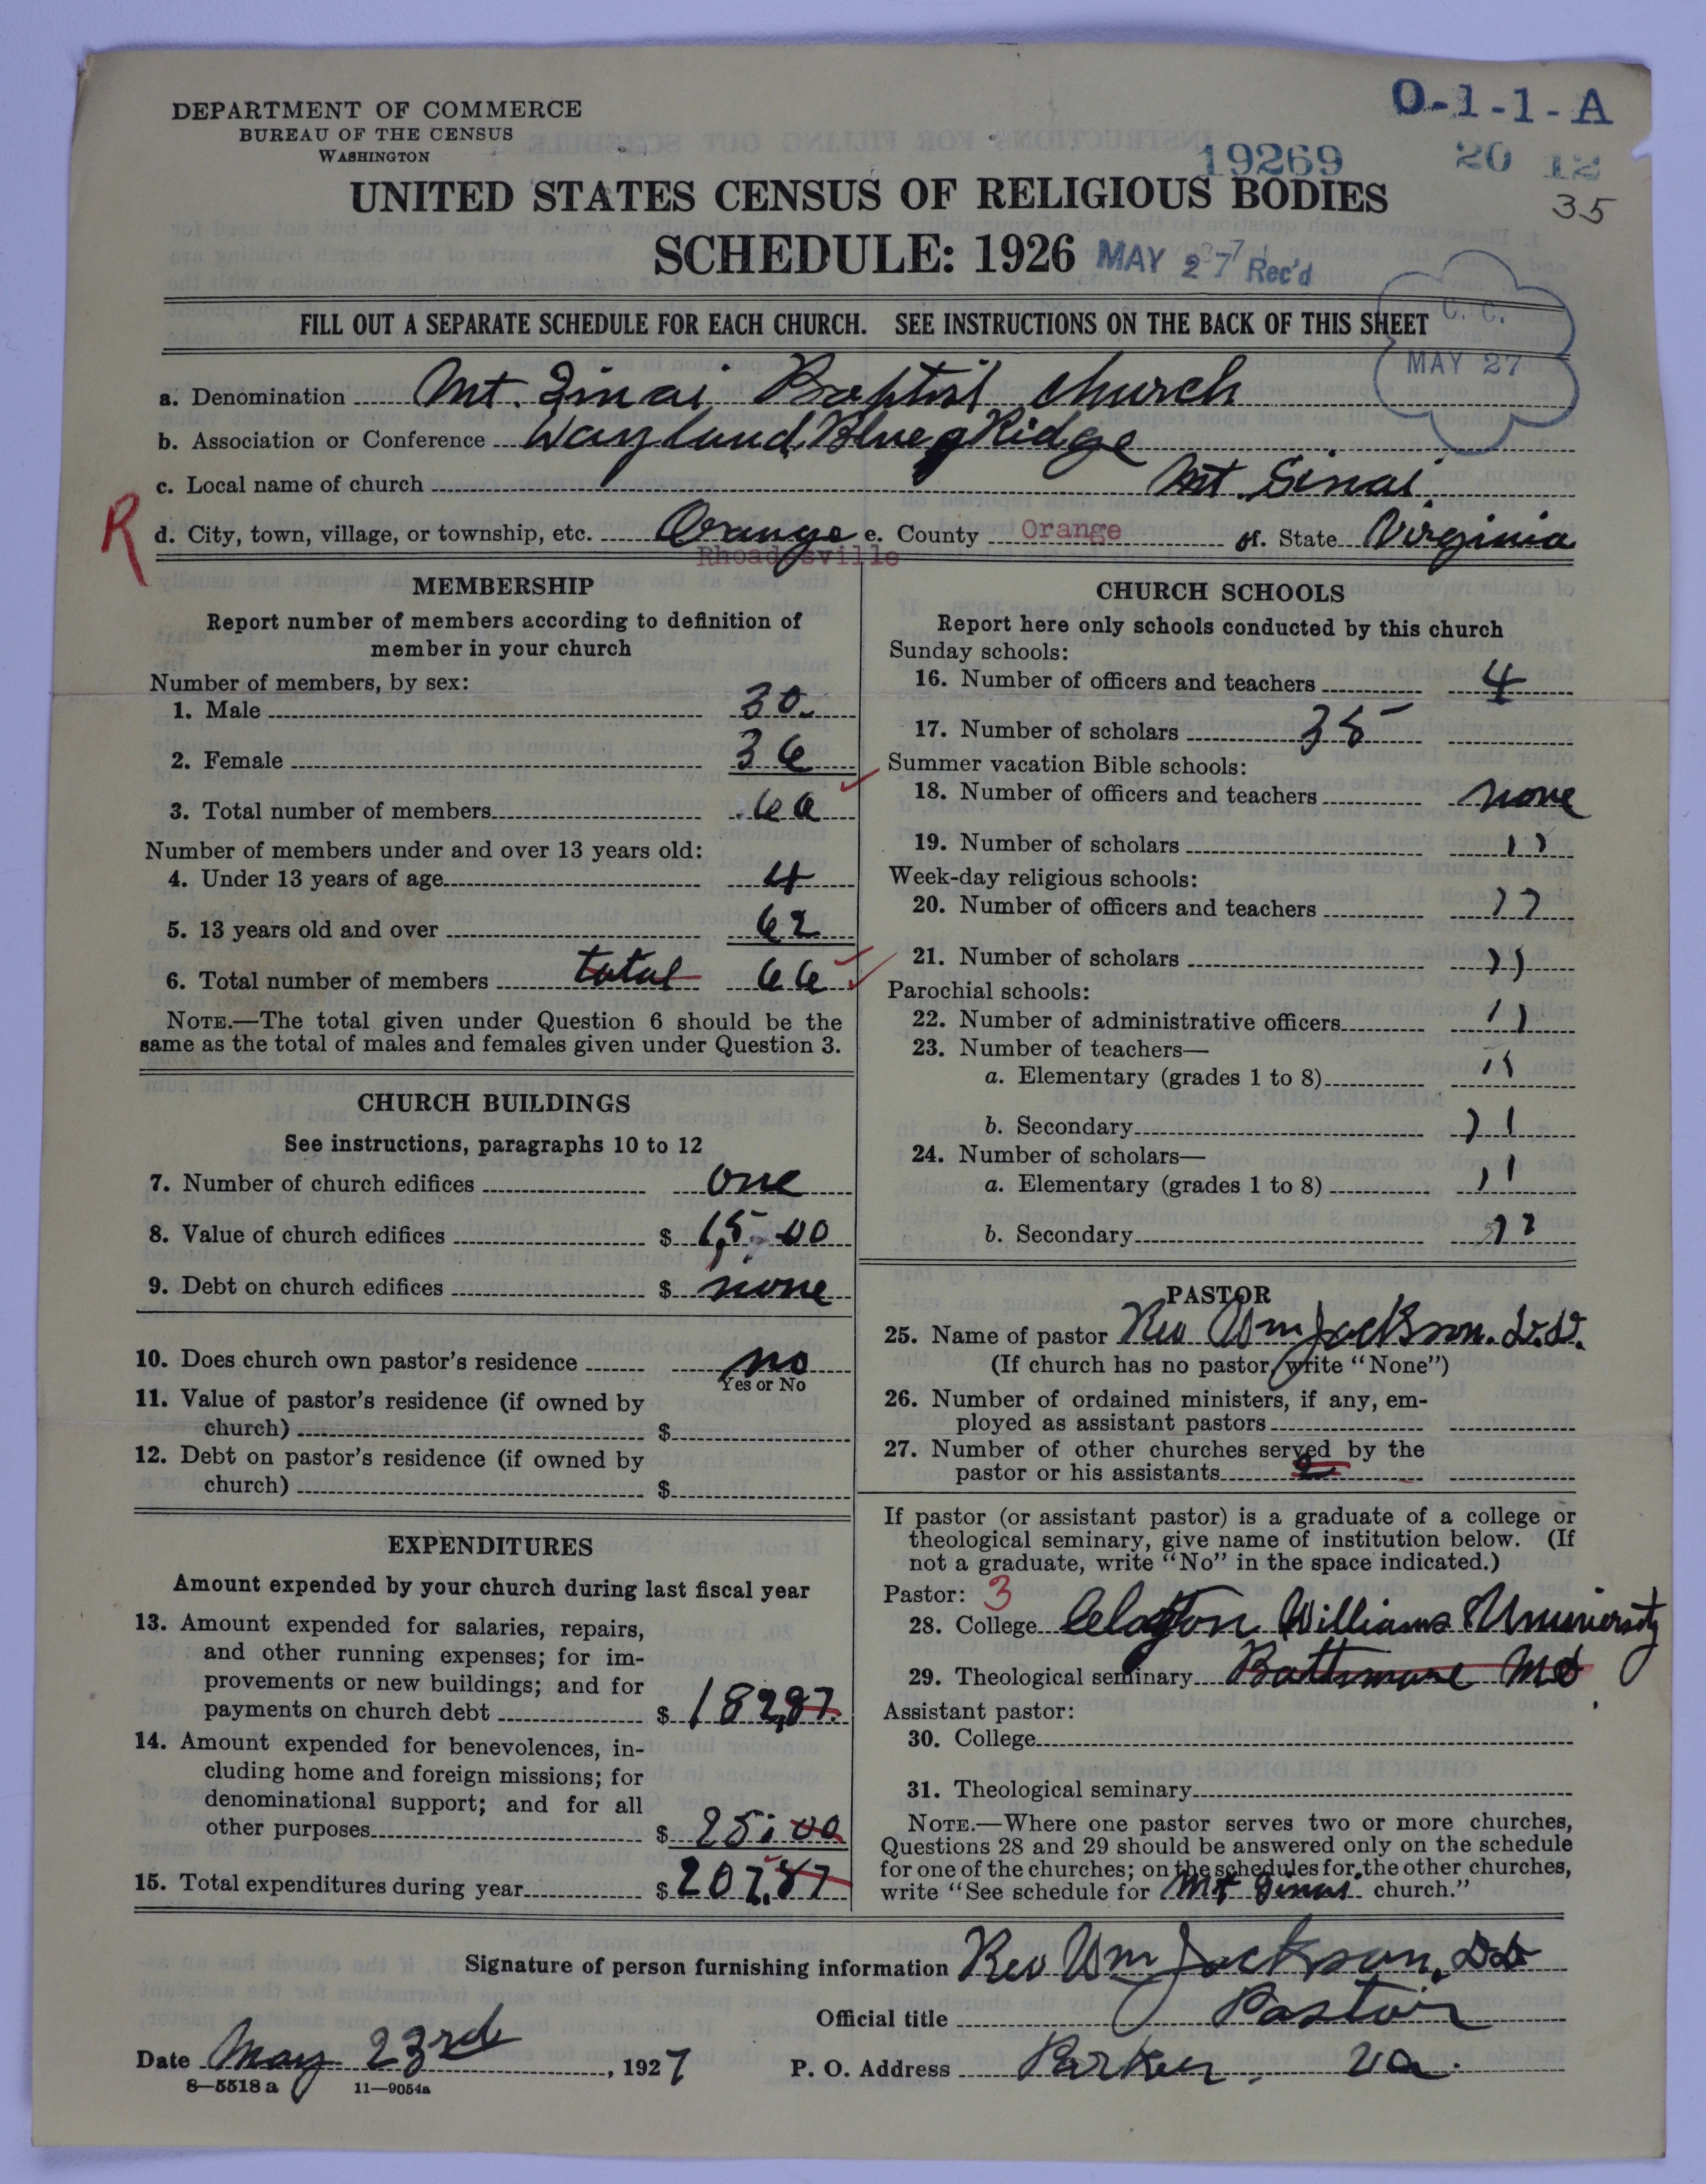 DEPARTMENT OF COMMERCE
BUREAU OF THE CENSUS
WASHINGTON
O-1-1-A
19269 20 12
35
UNITED STATES CENSUS OF RELIGIOUS BODIES
SCHEDULE: 1926 MAY 27 Rec'd
C. C.
MAY 27
FILL OUT A SEPARATE SCHEDULE FOR EACH CHURCH. SEE INSTRUCTIONS ON THE BACK OF THIS SHEET
a. Denomination Mt. Sinai Baptist church
b. Association or Conference Wayland Blue Ridge
c. Local name of church Mt. Sinai
R
d. City, town, village, or township, etc. Orange e. County Orange f. State Virginia
Rhoadesville
MEMBERSHIP
Report number of members according to definition of
member in your church
Number of members, by sex:
1. Male 30
2. Female 36
3. Total number of members 66
Number of members under and over 13 years old:
4. Under 13 years of age 4
5. 13 years old and over 62
6. Total number of members total 66
NOTE.—The total given under Question 6 should be the
same as the total of males and females given under Question 3.
CHURCH BUILDINGS
See instructions, paragraphs 10 to 12
7. Number of church edifices one
8. Value of church edifices $ 1,500
9. Debt on church edifices $ none
10. Does church own pastor's residence no
Yes or No
11. Value of pastor's residence (if owned by
church) $
12. Debt on pastor's residence (if owned by
church) $
EXPENDITURES
Amount expended by your church during last fiscal year
13. Amount expended for salaries, repairs,
and other running expenses; for im-
provements or new buildings; and for
payments on church debt $ 182,87
14. Amount expended for benevolences, in-
cluding home and foreign missions; for
denominational support; and for all
other purposes $ 25.00
15. Total expenditures during year $ 207.87
CHURCH SCHOOLS
Report here only schools conducted by this church
Sunday schools:
16. Number of officers and teachers 4
17. Number of scholars 35
Summer vacation Bible schools:
18. Number of officers and teachers none
19. Number of scholars "
Week-day religious schools:
20. Number of officers and teachers "
21. Number of scholars "
Parochial schools:
22. Number of administrative officers "
23. Number of teachers—
a. Elementary (grades 1 to 8) "
b. Secondary "
24. Number of scholars—
a. Elementary (grades 1 to 8) "
b. Secondary "
PASTOR
25. Name of pastor Rev Wm Jackson. D.D.
(If church has no pastor, write "None")
26. Number of ordained ministers, if any, em-
ployed as assistant pastors
27. Number of other churches served by the
pastor or his assistants 2
If pastor (or assistant pastor) is a graduate of a college or
theological seminary, give name of institution below. (If
not a graduate, write "No" in the space indicated.)
Pastor: 3
28. College Clayton Williams University
29. Theological seminary Baltimore Md
Assistant pastor:
30. College
31. Theological seminary
NOTE.—Where one pastor serves two or more churches,
Questions 28 and 29 should be answered only on the schedule
for one of the churches; on the schedules for the other churches,
write "See schedule for Mt Sinai church."
Signature of person furnishing information Rev Wm Jackson, DD
Official title Pastor
Date May 23rd, 1927 P. O. Address Parker, Va.
8—5518 a 11—9054a